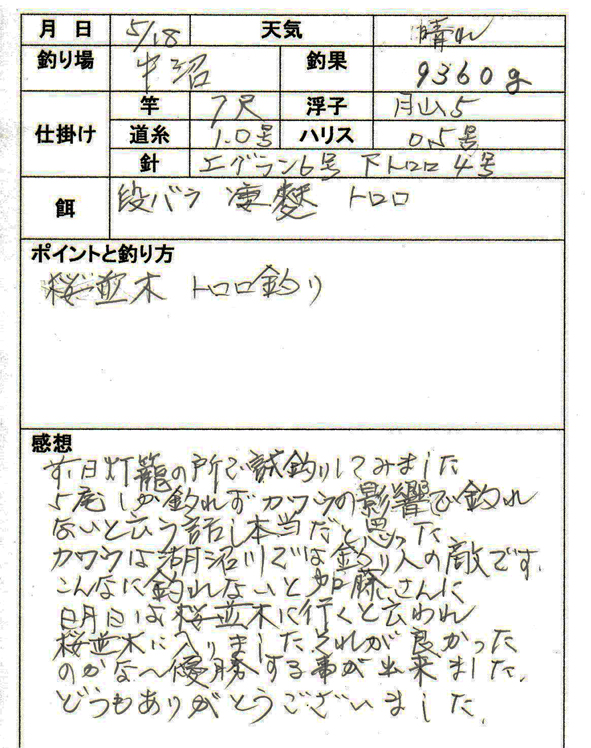 月 日 5/18 天気 晴れ
釣り場 中沼 釣果 9360g
仕掛け 竿 7尺 浮子 月山5
道糸 1.0号 ハリス 0.5号
針 エグラン6号 下トロロ 4号
餌 段バラ 凄麩 トロロ
ポイントと釣り方
桜並木 トロロ釣り
感想
前日灯籠の所で試釣りしてみました
5尾しか釣れずカワウの影響で釣れ
ないと云う話し本当だと思った
カワウは湖沼川では釣り人の敵です.
こんなに釣れないと加藤さんに
明日は桜並木に行くと云われ
桜並木に入りましたそれが良かった
のかな〜優勝する事が出来ました.
どうもありがとうございました.